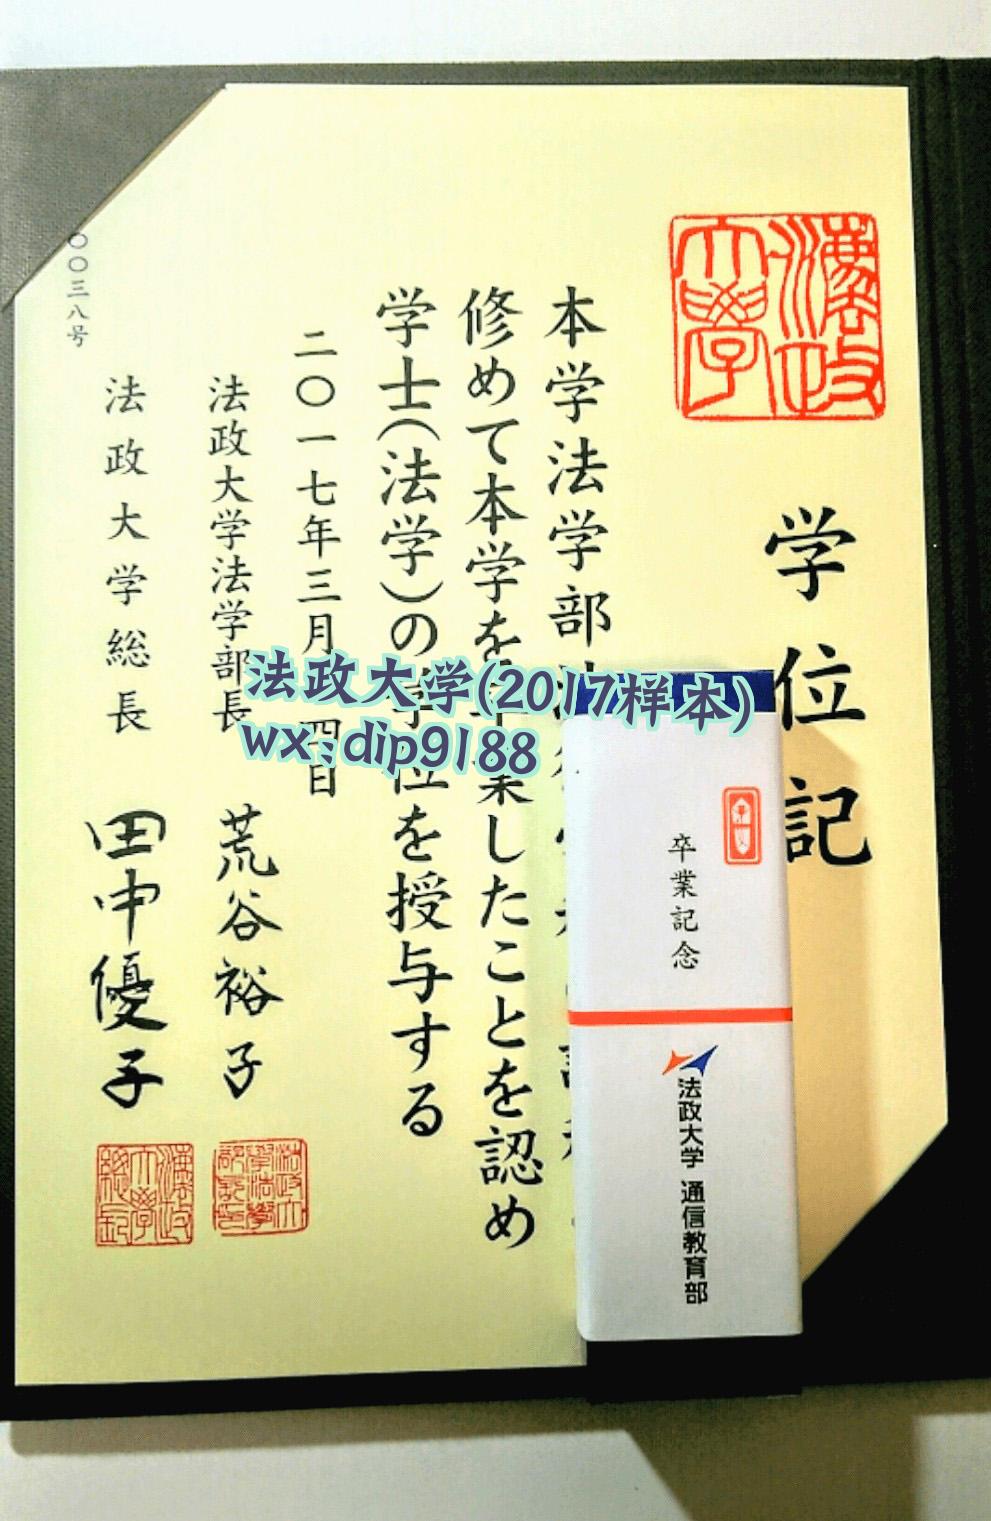 学位記
本学法学部
修めて本学を卒業したことを認め
学士(法学)の学位を授与する
二〇一七年三月 四日
法政大学法学部長
荒谷裕子
法政大学総長
田中優子
〇〇三八号
法政大学
法政大学(2017样本)
wx:dip9188
卒業記念
法政大学 通信教育部